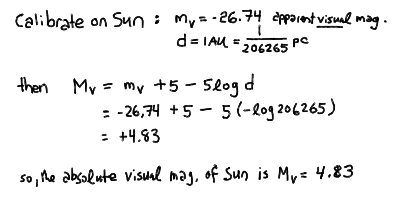 Calibrate on Sun : mᵥ = -26.74 apparent visual mag.
d = 1AU = 1/206265 pc
then Mᵥ = mᵥ + 5 - 5 log d
= -26,74 + 5 - 5 (-log 206265)
= +4.83
so, the absolute visual mag. of Sun is Mᵥ = 4.83